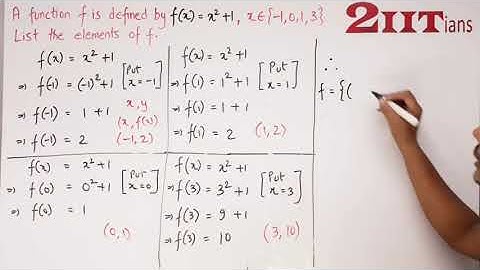 A function f is defined by f(x) = x² + 1, x ∈ {-1, 0, 1, 3}
List the elements of f.
2IITians
f(x) = x² + 1
⇒ f(-1) = (-1)² + 1 [Put x = -1]
⇒ f(-1) = 1 + 1
⇒ f(-1) = 2
x, y
(x, f(x))
(-1, 2)
f(x) = x² + 1
⇒ f(1) = 1² + 1 [Put x = 1]
⇒ f(1) = 1 + 1
⇒ f(1) = 2 (1, 2)
f(x) = x² + 1
⇒ f(0) = 0² + 1 [Put x = 0]
⇒ f(0) = 1
(0, 1)
f(x) = x² + 1
⇒ f(3) = 3² + 1 [Put x = 3]
⇒ f(3) = 9 + 1
⇒ f(3) = 10 (3, 10)
∴
f = {(